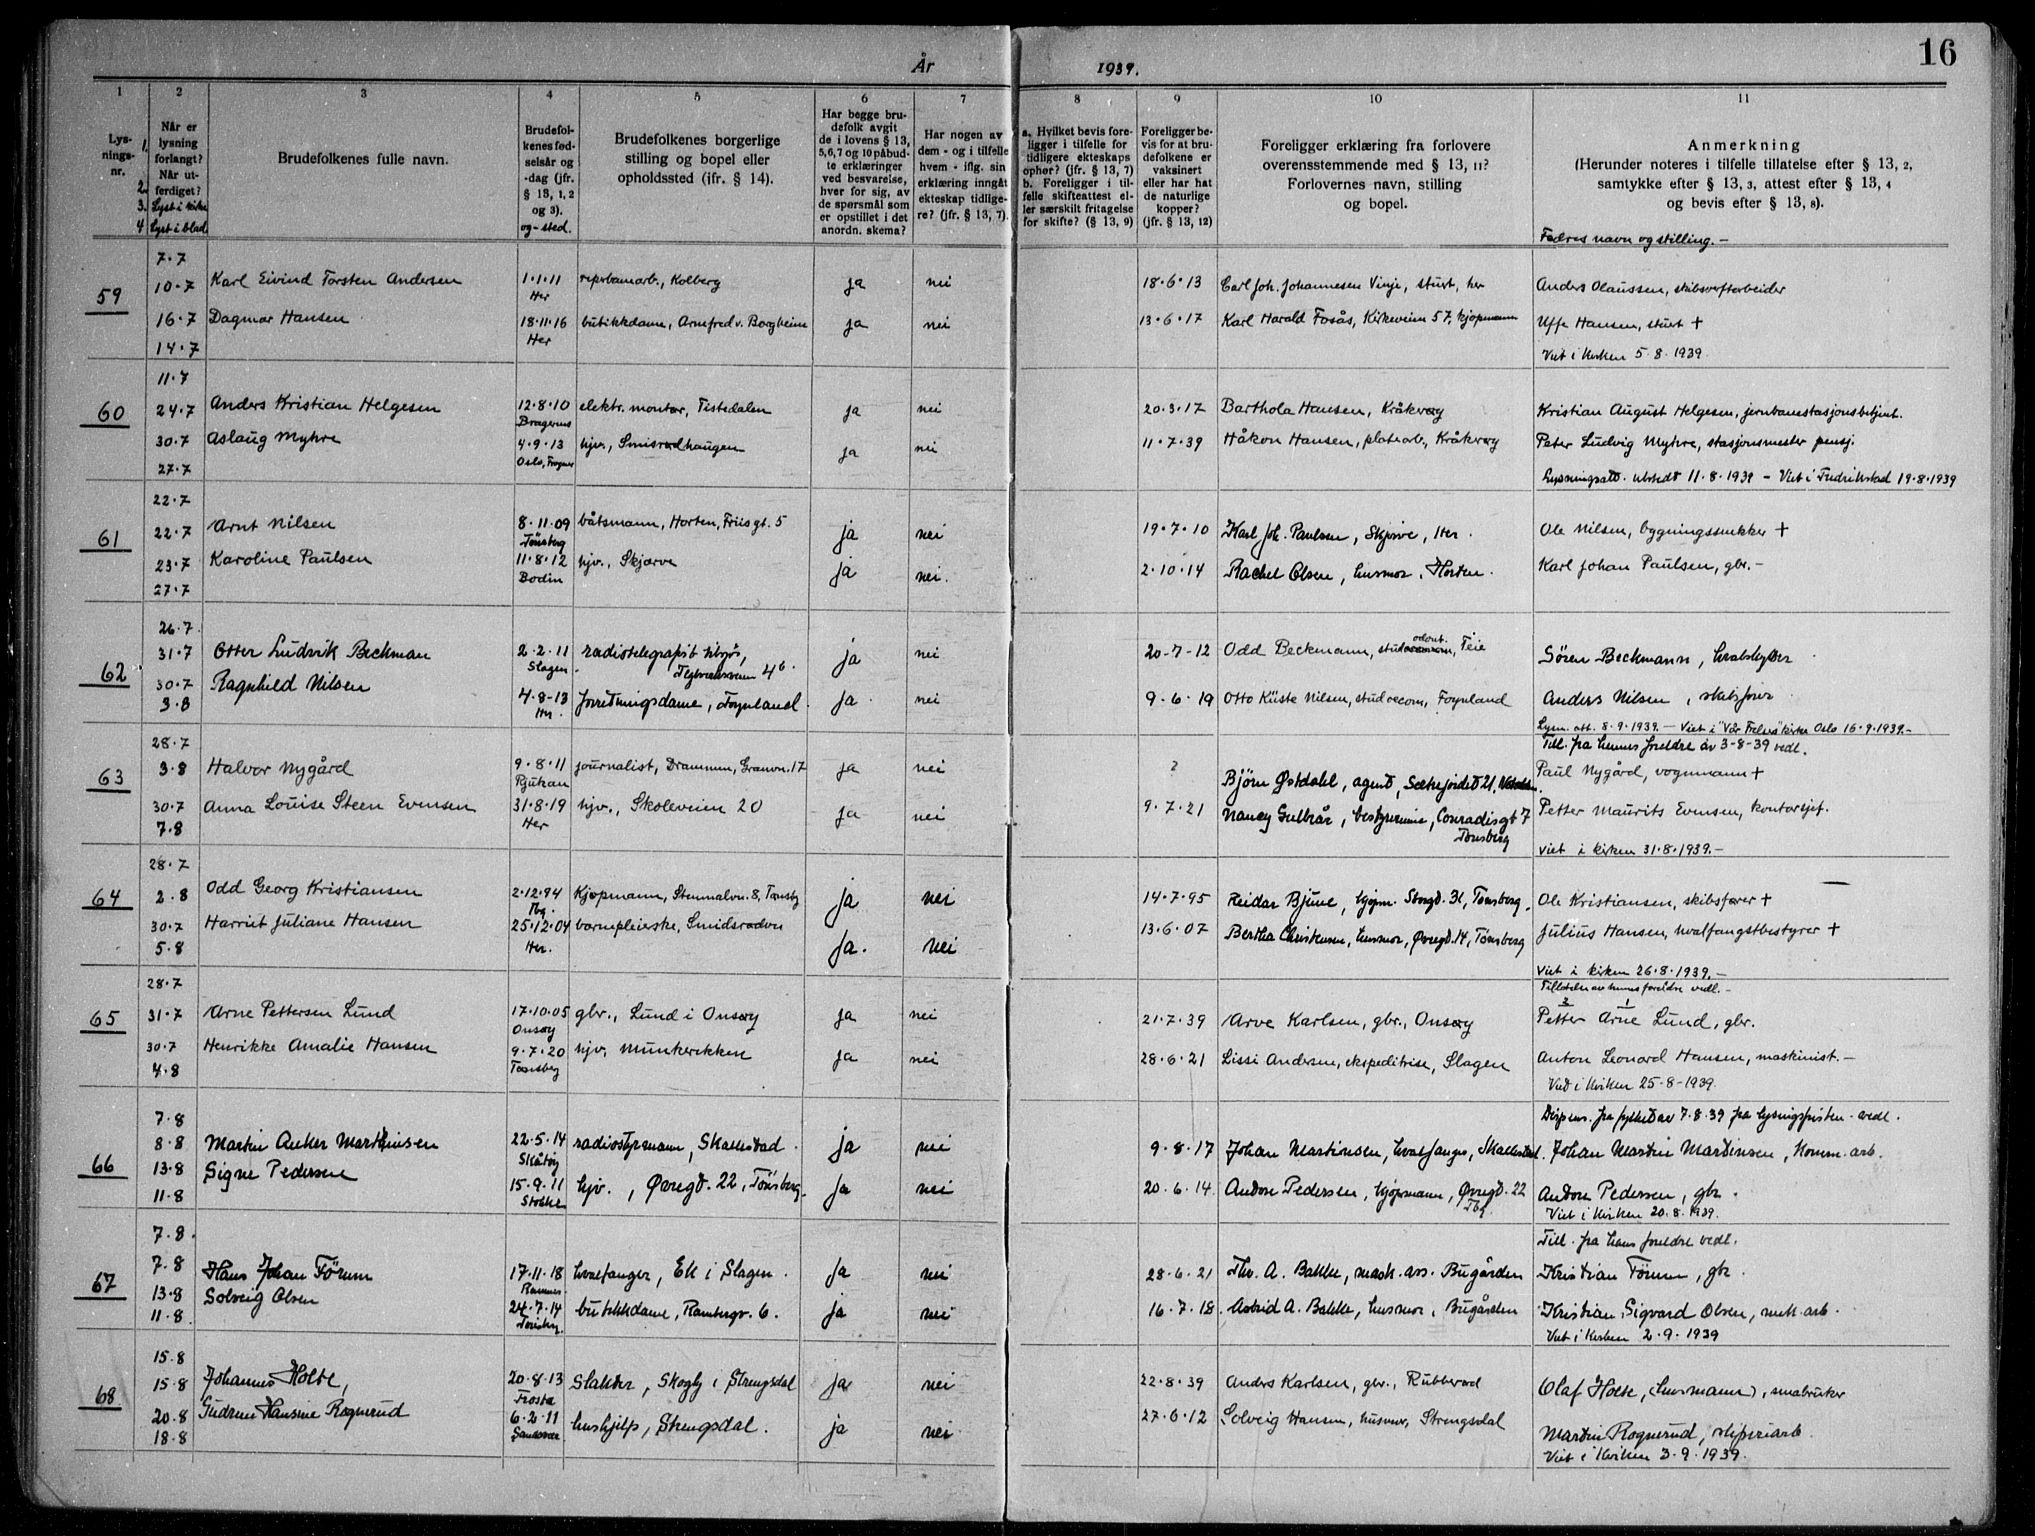 År 1939.
16
1 2 3 4 5 6 7 8 9 10 11
Lysningsnr.
1. Når er lysning forlangt?
2. Når utferdiget?
3. Lyst i kirke
4 Lyst i blad
Brudefolkenes fulle navn.
Brudefolkenes fødselsår og -dag (jfr. § 13, 1, 2 og 3). og -sted.
Brudefolkenes borgerlige stilling og bopel eller opholdssted (ifr. § 14).
Har begge brudefolk avgit de i lovens § 13, 5,6,7 og 10 påbudte erklæringer ved besvarelse, hver for sig, av de spørsmål som er opstillet i det anordn. skema?
Har nogen av dem - og i tilfelle hvem - iflg. sin erklæring inngått ekteskap tidligere? (jfr. § 13, 7).
a. Hvilket bevis foreligger i tilfelle for tidligere ekteskaps ophør? (jfr. § 13, 7)
b. Foreligger i tilfelle skifteattest eller særskilt fritagelse for skifte? (§ 13, 9)
Foreligger bevis for at brudefolkene er vaksinert eller har hat de naturlige kopper? (jfr. § 13, 12)
Foreligger erklæring fra forlovere overensstemmende med § 13, 11? Forlovernes navn, stilling og bopel.
Anmerkning (Herunder noteres i tilfelle tillatelse efter § 13, 2, samtykke efter § 13, 3, attest efter § 13, 4 og bevis efter § 13, 8).
Fedres navn og stilling. -
59
7.7
10.7 Karl Eivind Torsten Andersen 1.1.11 Her reperbanarb., Kolberg ja nei 18.6.13 Carl Joh. Johannesen Vinje, stuert, her Anders Olaussen, skibsverftarbeider
16.7 Dagmar Hansen 18.11.16 Her butikkdame, Arnfred v. Borgheim ja nei 13.6.17 Karl Harald Fosås, Kirkeveien 57, kjøpmann Uffe Hansen, stuert +
14.7 Viet i kirken 5.8.1939.
60
11.7
24.7 Anders Kristian Helgesen 12.8.10 Bragernes elektr. montør, Tistedalen ja nei 20.3.17 Barthola Hansen, Kråkverg Kristian August Helgesen, jernbanestasjonsbetjent.
30.7 Aslaug Myhre 4.9.13 Oslo, Frogner hjv., Smisrødhaugen ja nei 11.7.39 Håkon Hansen, platearb., Kråkverg Peter Ludvig Myhre, stasjonsmester pensj.
27.7 Lysningsatt. utstedt 11.8.1939 - Viet i Fredrikstad 19.8.1939
61
22.7
22.7 Arnt Nilsen 8.11.09 Tønsberg båtsmann, Horten, Friisgt. 5 ja nei 19.7.10 Karl Joh. Paulsen, Skjerve, Her. Ole Nilsen, bygningssnekker +
23.7 Karoline Paulsen 11.8.12 Bodin hjv., Skjærve ja nei. 2.10.14 Rachel Olsen, husmor, Horten. Karl Johan Paulsen, gbr. -
27.7
62
26.7
31.7 Otter Ludvik Beckman 2.2.11 Slagen radiotelegrafist tilsjøs, Teglverksveien 4b. ja nei 20-7-12 Odd Beckmann, stud. odont., Teie Søren Beckmann, hvalskytter
30.7 Ragnhild Nilsen 4-8-13 Her. forretningsdame, Føynland. ja. nei 9.6.19 Otto Küste Nilsen, stud oecon, Foynland Anders Nilsen, skibsfører
3.8 Lysn. att. 8.9.1939. - Viet i "Vår Frelsers" kirke Oslo 16.9.1939. -
63
28.7 Till. fra hennes foreldre av 3-8-39 vedl.
3.8 Halvor Nygård 9.8.11 Rjukan journalist, Drammen, Grønnv. 17 ja nei ? Bjørn Østdahl, agent, 21, Paul Nygård, vognmann +
30.7 Anna Louise Steen Evensen 31.8.19 Her hjv., Skoleveien 20 ja nei 9.7.21 Nancy Gulbrår, bestyrerinne, Conradisgt 7 Tønsberg Petter Maurits Evensen, kontorsjef.
7.8 Viet i kirken 31.8.1939. -
64
28.7
2.8 Odd Georg Kristiansen 2.12.94 Tbg. Kjøpmann, Stenmalvn. 8, Tønsbg ja nei 14.7.95 Reidar Bjune, kjøpm. Storgt. 31, Tønsberg. Ole Kristiansen, skibsfører +
30.7 Harriet Juliane Hansen 25.12.04 Her. barnepleierske, Smidsrødvn ja. nei 13.6.07 Bertha Christensen, husmor, Øvregt. 14, Tønsberg Julius Hansen, hvalfangstbestyrer +
5.8 Viet i kirken 26.8.1939. -
65
28.7 Tillatelse av hennes foreldre vedl. -
31.7 Arne Pettersen Lund 17.10.05 Onsøy gbr., Lund i Onsøy ja nei 21.7.39 Arve Karlsen, gbr., Onsøy 2 Petter 1 Arne Lund, gbr.
30.7 Henrikke Amalie Hansen 9.7.20 Tønsberg hjv, Munkerekken ja nei 28.6.21 Lissi Andersen, ekspeditrise, Slagen Anton Leonard Hansen, maskinist. -
4.8 Vied i kirken 25.8-1939.
66
7.8 Dispens. fra fylket av 7.8.39 fra lysningsfristen vedl.
8.8 Martin Anker Marthinsen 22.5.14 Skåtøy radiostyrmann, Skallestad ja nei 9.8.17 Johan Martinsen, hvalfanger, Skallestad. Johan Martin Martinsen, komm. arb.
13.8 Signe Pedersen 15.9.11 Stokke hjv., Øvregt. 22, Tønsberg. ja nei 20.6.14. Andor Pedersen, kjøpmann, Øvregt. 22 Tbg. Andor Pedersen, gbr.
11.8 Viet i kirken 20.8.1939.
67
7.8. Till. fra hans foreldre vedl.
7.8 Hans Johan Førum 17.11.18 Ramnes hvalfanger, Ek i Slagen. ja nei 28.6.21 Thv. A. Bakke, mask. ass. Bugården Kristian Førum, gbr.
13.8 Solveig Olsen 24.7.14 Tønsberg butikkdame, Rambergv. 6. ja nei 16.7.18. Astrid A. Bakke, husmor, Bugården Kristian Sigvard Olsen, mek arb.
11.8 Viet i kirken 2.9.1939
68
15.8
15.8 Johannes Holte, 20.8.13 Frosta Slakter, Skogly i Strengsdal ja nei 22.8.39 Anders Karlsen, gbr., Rubberød Olaf Holte, (husmann), småbruker
20.8 Gudrun Hansine Rognerud 6.2.11 Sandsvær hushjelp, Strengsdal. ja nei 27.6.12 Solveig Hansen, husmor, Strengsdal Martin Rognerud, sliperiarb.
18.8 Viet i kirken 3.9.1939.